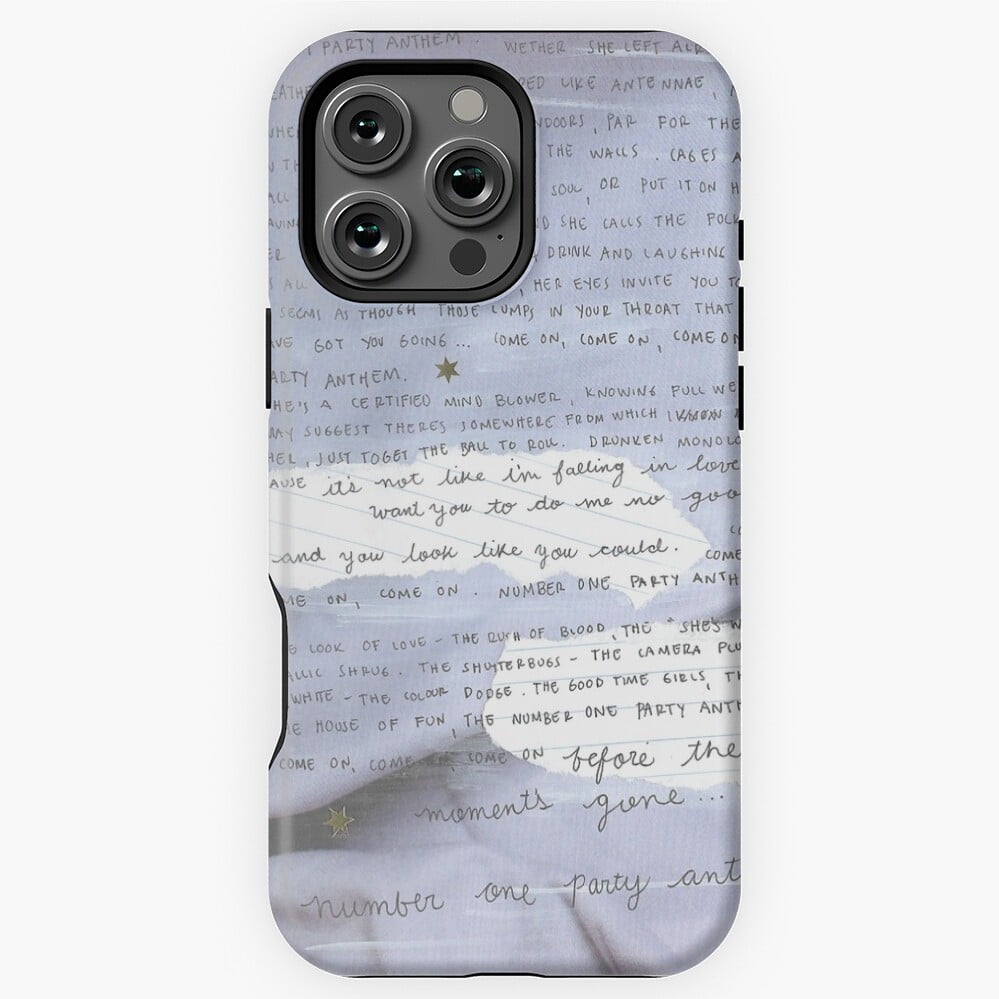 PARTY ANTHEM. WETHER SHE LEFT ALR
RED LIKE ANTENNAE,
NDOORS, PAR FOR THE
THE WALLS. CAGES A
ALL SOUL, OR PUT IT ON H
D SHE CALLS THE FOL
ER DRINK AND LAUGHING
ALL , HER EYES INVITE YOU TO
SEEMS AS THOUGH THOSE LUMPS IN YOUR THROAT THAT
AVE GOT YOU GOING... COME ON, COME ON, COME ON
ARTY ANTHEM.
HE'S A CERTIFIED MIND BLOWER, KNOWING FULL WE
MAY SUGGEST THERES SOMEWHERE FROM WHICH I KNOW
HER, JUST TO GET THE BALL TO ROLL. DRUNKEN MONOLO
AUSE it's not like i'm falling in love
want you to do me no goo
and you look like you could. COME
ME ON, COME ON. NUMBER ONE PARTY ANTH
E LOOK OF LOVE - THE RUSH OF BLOOD, THE "SHE'S W
ALLIC SHRUG. THE SHUTTERBUGS - THE CAMERA PLU
WHITE - THE COLOUR DODGE. THE GOOD TIME GIRLS, TH
HE HOUSE OF FUN, THE NUMBER ONE PARTY ANTH
COME ON, COME ON, COME ON before the
moment's gone...
number one party ant